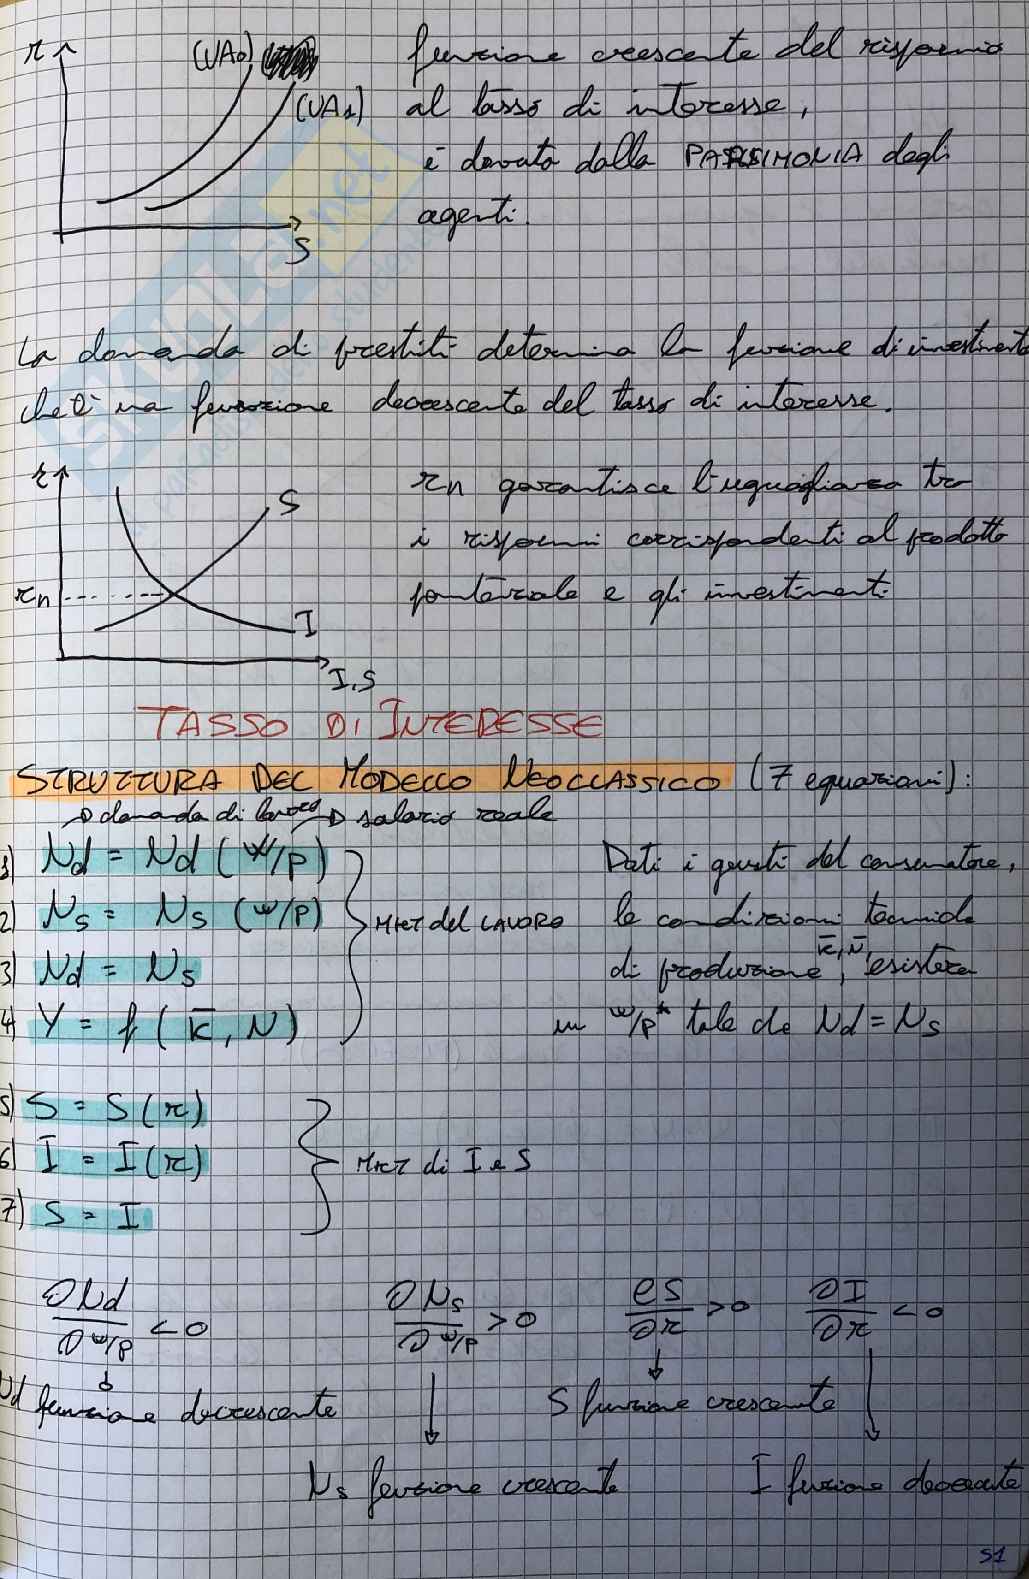 r
(UA0)
(UA1)
S
funzione crescente del risparmio
al tasso di interesse,
è dovuto dalla PARSIMONIA degli
agenti.
SKUOLA.net
La domanda di prestiti determina la funzione di investimento
che è una funzione decrescente del tasso di interesse.
r
S
rn
I
I,S
rn garantisce l'uguaglianza tra
i risparmi corrispondenti al prodotto
potenziale e gli investimenti
TASSO DI INTERESSE
STRUTTURA DEL MODELLO NEOCLASSICO (7 equazioni):
→ domanda di lavoro → salario reale
1) Nd = Nd (W/P)
2) Ns = Ns (W/P)
3) Nd = Ns
4) Y = f (K̅, N)
MKT del LAVORO
Dati i gusti del consumatore,
le condizioni tecniche
di produzione K̅, N̅, esisterà
un W/P* tale che Nd = Ns
5) S = S(r)
6) I = I(r)
7) S = I
MKT di I e S
∂Nd/∂W/P < 0
∂Ns/∂W/P > 0
∂S/∂r > 0
∂I/∂r < 0
Nd funzione decrescente
S funzione crescente
Ns funzione crescente
I funzione decrescente
51